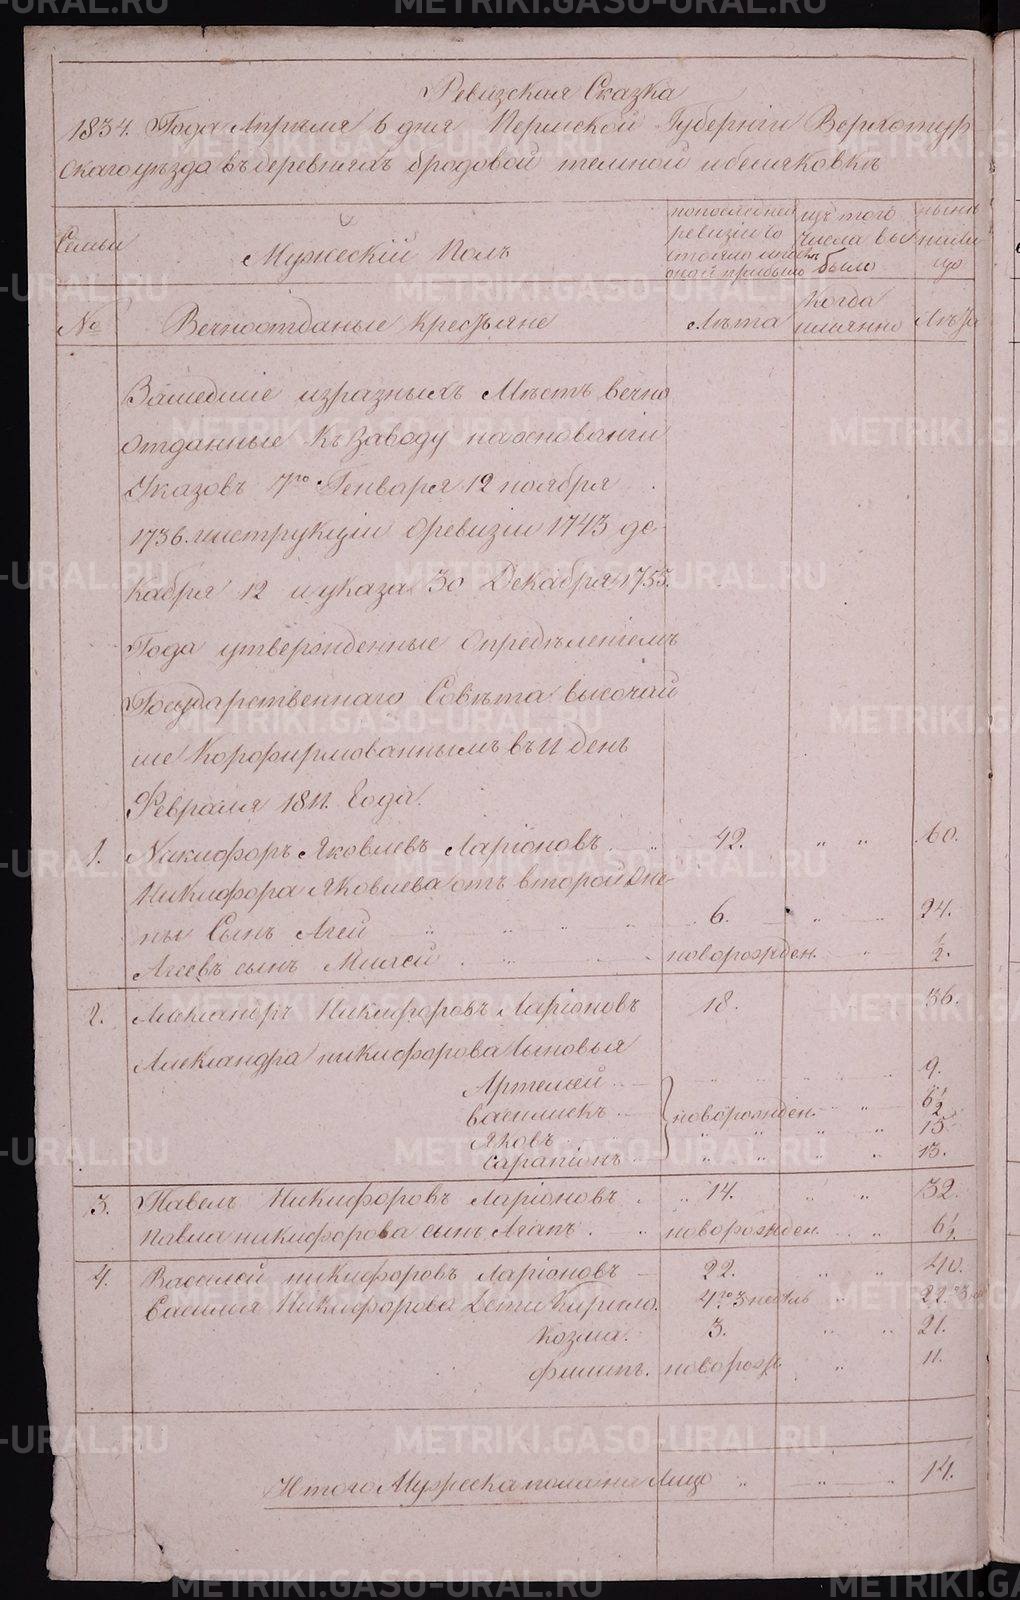 Ревизская Сказка
1834. Года Апреля 6 дня Пермской Губерніи Верхотур
скаго уезда въ деревняхъ бродовой темной и беляковкѣ
Семьи
Мужескій Полъ
по последней ревизіи со
изъ того числа выбыло
нынѣ на лицо
№
Вечноотданые Крестьяне
Лѣта
Когда имянно
Лѣта
Зашедшіе изразныхъ Мѣстъ вечно
отданные Къ Заводу наоснованіи
Указовъ 7го Генваря 12 ноября
1736. инструкціи Оревизіи 1743 де
кабря 12 и указа 30 Декабря 1755.
Года утвержденные Определеніемъ
Государственнаго Совѣта высочай
ше Корофирмованнымъ въ 11 день
Февраля 1811. Года.
1. Никифоръ Яковлевъ Ларіоновъ. 42. „ „ 60.
Никифора Яковлева отъ второй Же
ны Сынъ Агей 6. „ 24.
Агеевъ сынъ Милей новорожден. „ 1/2.
2. Никифоровъ Ларіоновъ 18. 36.
Александра никифорова Сыновья
Артемей 9.
василискъ новорожден. „ 6 1/2
Яковъ „ „ „ „ 15.
Сарапіонъ „ „ „ „ 13.
3. Павелъ Никифоровъ Ларіоновъ. „ 14. „ „ 32.
Павла никифорова сынъ Агапъ. „ новорожден. „ 6 1/2
4. Василей никифоровъ Ларіоновъ 22. „ „ 40.
Василия Никифорова Дети Кирило. 22
Козма. 3. „ „ 21.
филипъ. новорож. „ 11.
Итого Мужеска пола на Лицо „ „ „ 14.
METRIKI.GASO-URAL.RU